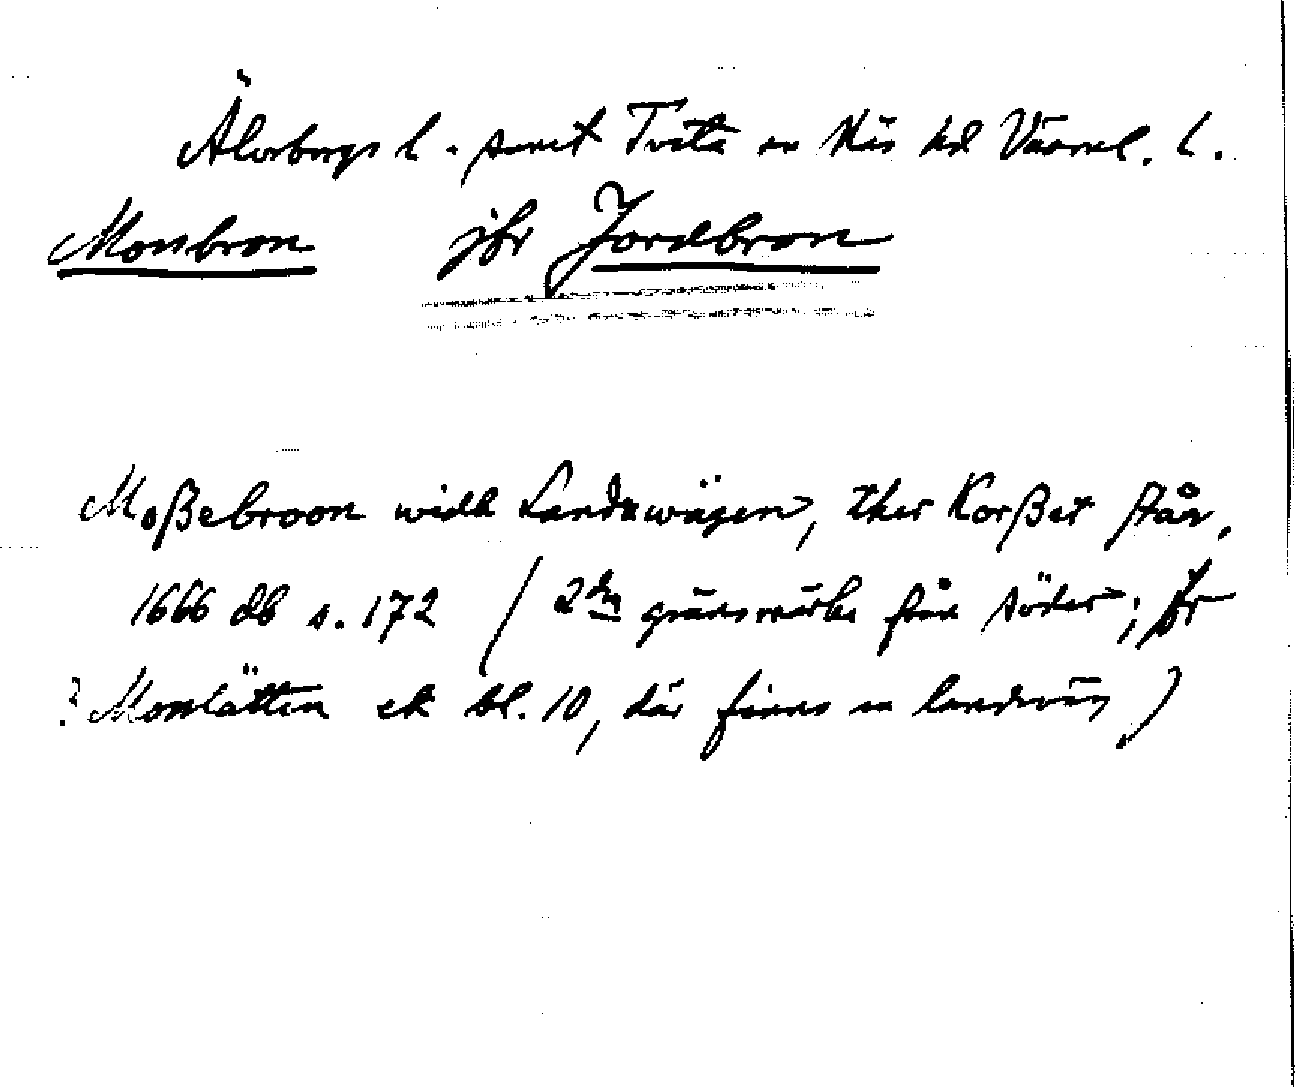 Älvsborgs l. samt Tveta sn Näs hd Värml. l.
Mossbron jfr Jordbron
Moßebroon widh Landzwägen, ther Korßet står,
1666 db s. 172 (2dra gränsmärke från söder; jfr
? Mosslätten ek bl. 10, där finns en landsväg)